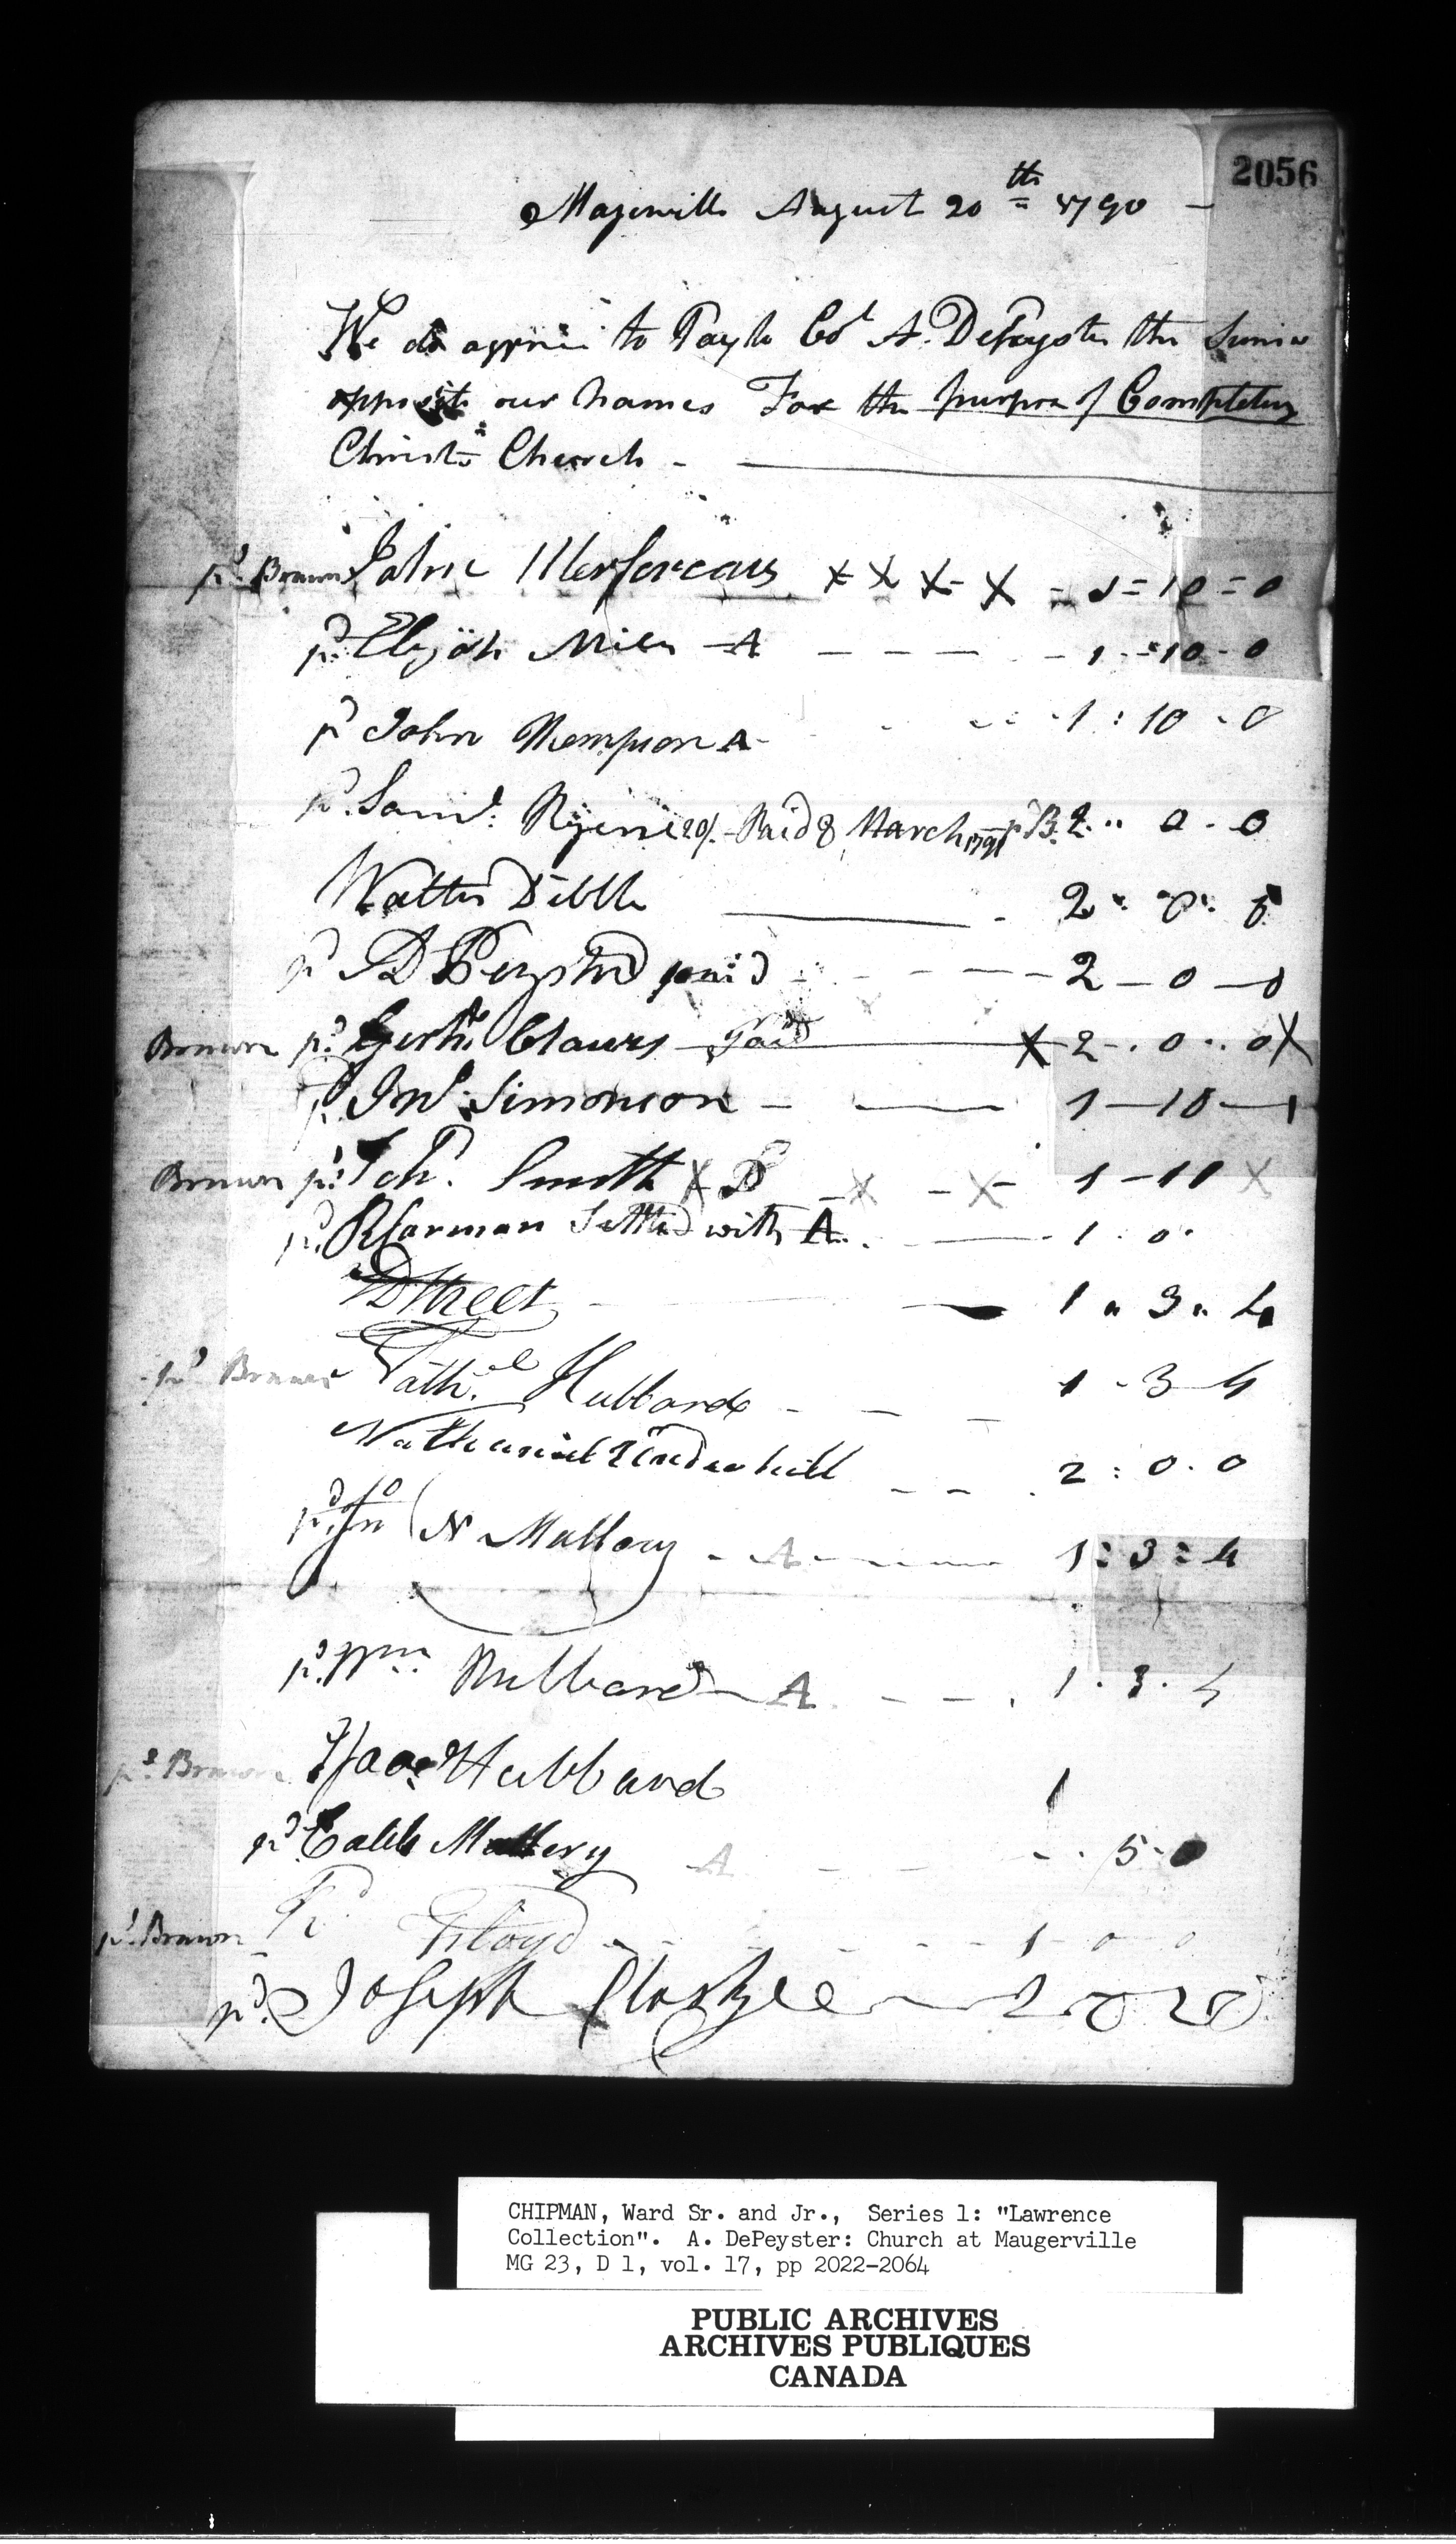 2056
Majervill August 20th 1790
We do agree to Pay to Col A. DePeyster the Sums
opposite our Names For the purpose of Completing
Christs Church
pd Brawn John Mersereau X X X X 1=10=0
pd. Elijah Miles A 1=10-0
pd John Thompson A 1:10-0
pd. Saml: 20/. Paid 8 March 1791 pd B. 2 " 0-0
Walter Dibble 2"0"0
pd A D Peyster paid 2-0-0
Brawn pd. Clawes Paid X 2-.0..0 X
pd. Jno. Simonson 1-10
Brawn pd. Ichd. Smith X Do X X 1-10 X
pd. R Carman Settled with A. 1.0.
D Street 1"3"4
pd Brawn Nathl. Hubbard 1-3-4
Nathaniel Underhill 2:0.0
pd. Jno (N Mallory A 1=3=4
pd. Wm. Hubbard A 1.3.4
pd Brawn Isaac Hubbard 1
pd Caleb Mallery A 15-0
pd. Brawn Rd Lloyd 1-0-0
pd. Joseph Clarke 2
CHIPMAN, Ward Sr. and Jr., Series 1: "Lawrence
Collection". A. DePeyster: Church at Maugerville
MG 23, D 1, vol. 17, pp 2022-2064
PUBLIC ARCHIVES
ARCHIVES PUBLIQUES
CANADA